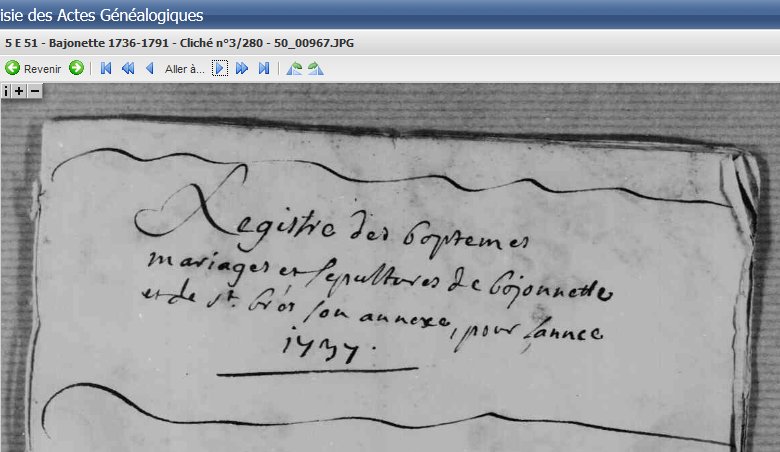 isie des Actes Généalogiques
5 E 51 - Bajonette 1736-1791 - Cliché n°3/280 - 50_00967.JPG
Revenir Aller à...
i + -
Registre des boptemes
mariages et sepultures de bojonnette
et de st. brés son annexe, pour lannee
1737.